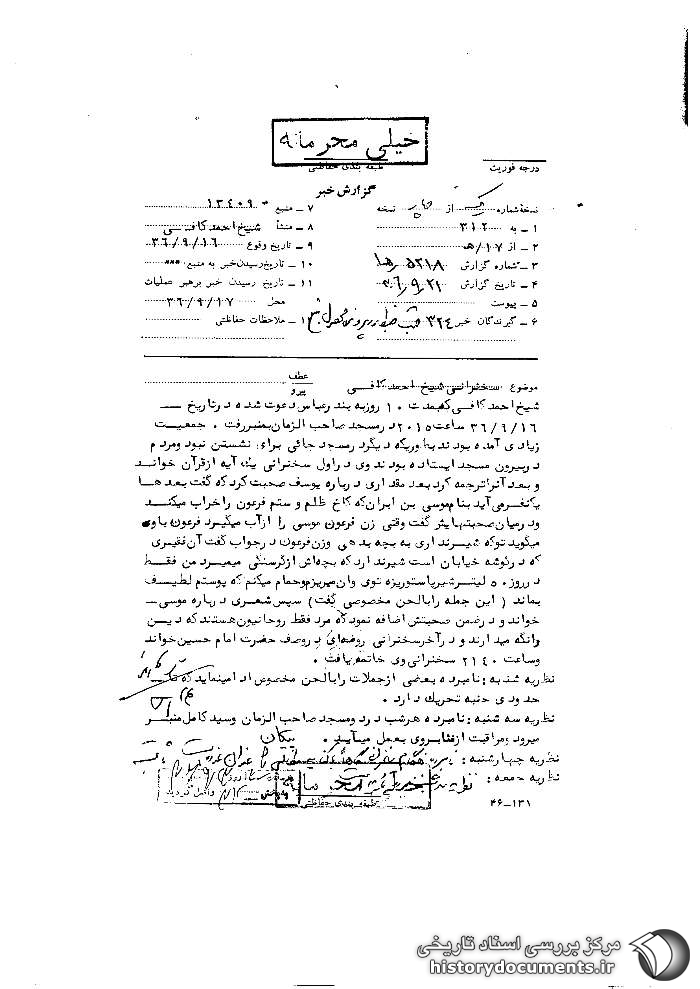 خیلی محرمانه
طبقه بندی حفاظتی
درجه فوریت
گزارش خبر
نسخهٔ شماره یک از چهار نسخه
۷ ـ منبع ۱۳۴۰۹
۱ ـ به ۳۱۲
۸ ـ منشأ شیخ احمد کافی
۲ ـ از ۱۷/ﻫ
۹ ـ تاریخ وقوع ۳۶/۹/۱۶
۳ ـ شماره گزارش ۵۲۱۸
۱۰ ـ تاریخ رسیدن خبر به منبع ***
۴ ـ تاریخ گزارش ۳۶/۹/۲۱
۱۱ ـ تاریخ رسیدن خبر برهبر عملیات
۵ ـ پیوست
محل ۳۶/۹/۱۷
۶ ـ گیرندگان خبر ۳۲۴
۱ ـ ملاحظات حفاظتی
موضوع سخنرانی شیخ احمد کافی
عطف
پیرو
شیخ احمد کافی که بمدت ۱۰ روز به بندرعباس دعوت شده در تاریخ
۳۶/۹/۱۶ ساعت ۲۰۱۵ در مسجد صاحب الزمان بمنبر رفت ۰ جمعیت
زیادی آمده بودند بطوریکه دیگر در مسجد جائی برای نشستن نبود و مردم
در بیرون مسجد ایستاده بودند وی در اول سخنرانی یک آیه از قرآن خواند
و بعد آنرا ترجمه کرد بعد مقداری در باره یوسف صحبت کرد که گفت بعد ها
یکنفر می آید بنام موسی بن ایران که کاخ ظلم و ستم فرعون را خراب میکند
و در میان صحبتهایش گفت وقتی زن فرعون موسی را از آب میگیرد فرعون باوی
میگوید تو که شیر نداری به بچه بدهی وزن فرعون در جواب گفت آن فقیری
که در گوشه خیابان است شیر ندارد که بچه اش از گرسنگی میمیرد من فقط
در روز ۵۰ لیتر شیر پاستوریزه توی وان میریزم و حمام میکنم که پوستم لطیف
بماند ( این جمله را بالحن مخصوصی گفت ) سپس شعری در باره موسی
خواند و در ضمن صحبتش اضافه نمود که مرد فقط روحانیون هستند که دین
را نگه میدارند و در آخر سخنرانی روضه‌ای در وصف حضرت امام حسین خواند
و ساعت ۲۱۴۰ سخنرانی وی خاتمه یافت ۰
نظریه شنبه : نامبرده بعضی از جملات را بالحن مخصوص ادا مینماید که تا
حدودی جنبه تحریک دارد ۰
نظریه سه شنبه : نامبرده هر شب در دو مسجد صاحب الزمان و سید کامل منبر
میرود و مراقبت از نامبروی بعمل میآید ۰ پیکان
نظریه چهارشنبه :
نظریه جمعه :
خیلی محرمانه
طبقه بندی حفاظتی
۴۶-۱۳۱
مرکز بررسی اسناد تاریخی
historydocuments.ir